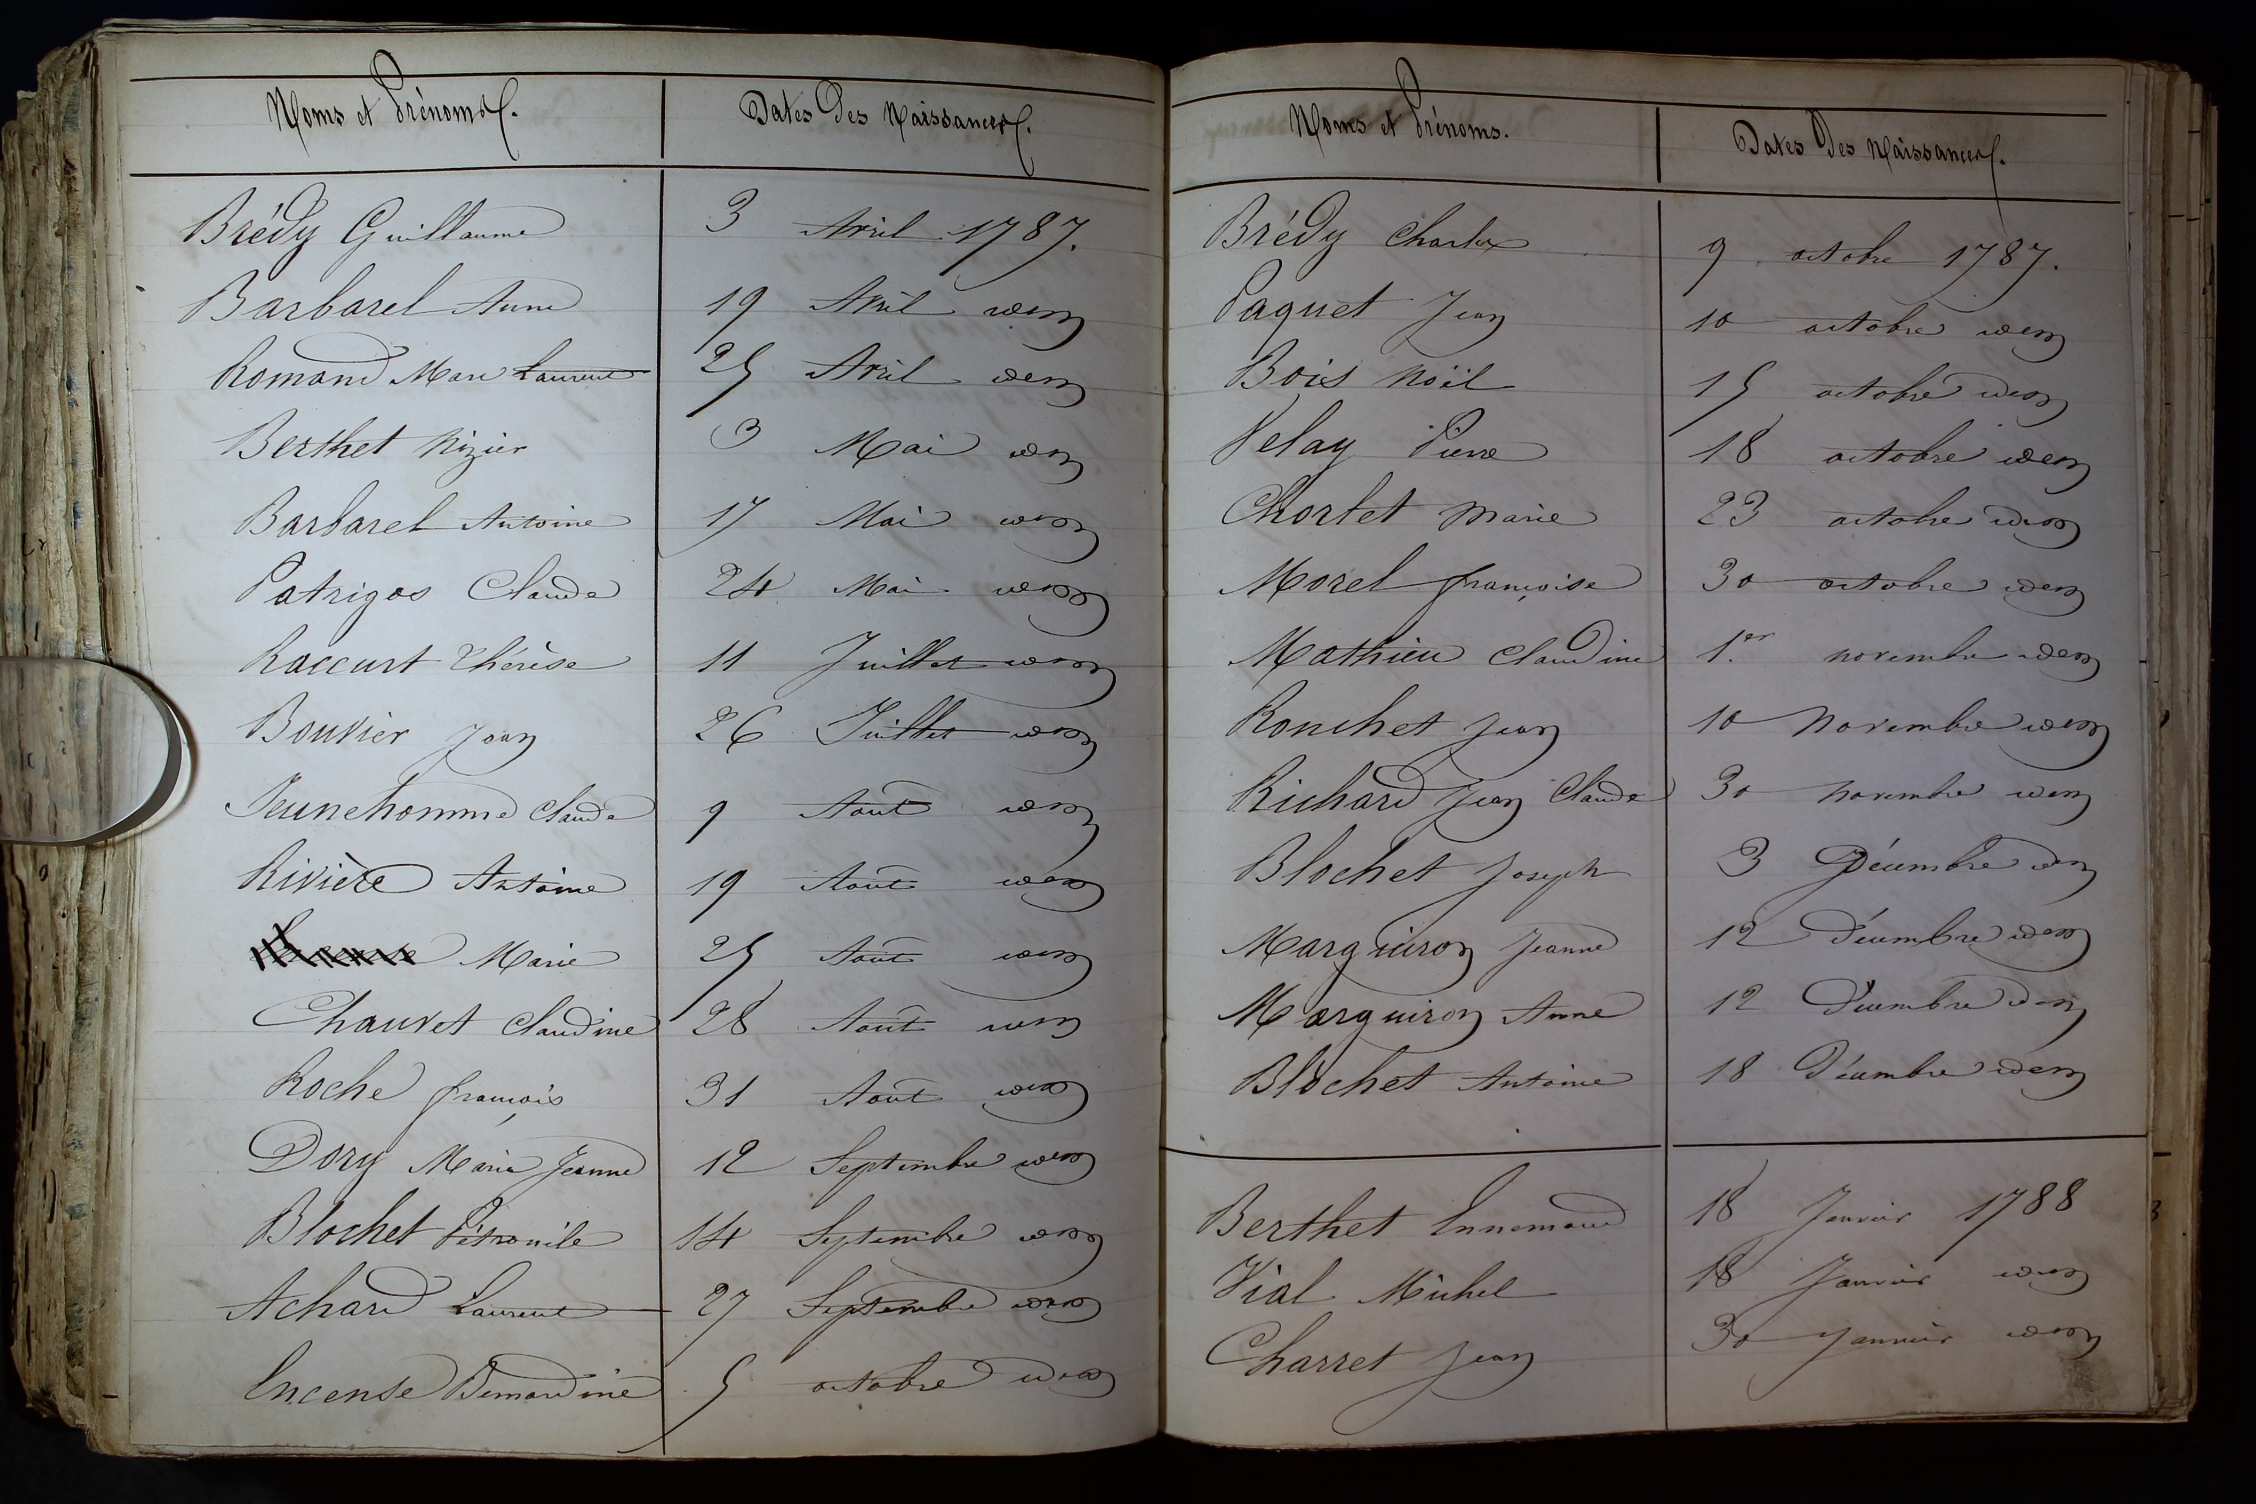 Noms et Prénoms. Dates Des Naissances.
Brédy Guillaume 3 Avril 1787.
Barbarel Anne 19 Avril idem
Romand Marc Laurent 25 Avril idem
Berthet Nizier 3 Mai idem
Barbarel Antoine 17 Mai idem
Patrigos Claude 24 Mai idem
Raccurt Thérèse 11 Juillet idem
Bouvier Jean 26 Juillet idem
Jeunehomme Claude 9 Aout idem
Rivière Antoine 19 Aout idem
Marie 25 Aout idem
Chauvet Claudine 28 Aout idem
Roche françois 31 Aout idem
Dory Marie Jeanne 12 Septembre idem
Blochet Pétronile 14 Septembre idem
Achard Laurent 27 Septembre idem
Encense Bernardine 5 octobre idem
Noms et Prénoms. Dates Des Naissances.
Brédy Charles 9 octobre 1787.
Paquet Jean 10 octobre idem
Bois Noël 15 octobre idem
Velay Pierre 18 octobre idem
Chorlet Marie 23 octobre idem
Morel françoise 30 octobre idem
Mathieu Claudine 1.er novembre idem
Ronchet Jean 10 Novembre idem
Richard Jean Claude 30 Novembre idem
Blochet Joseph 3 Décembre idem
Marguiron Jeanne 12 Décembre idem
Marguiron Anne 12 Décembre idem
Blochet Antoine 18 Décembre idem
Berthet Ennemond 18 Janvier 1788
Vial Michel 18 Janvier idem
Charret Jean 30 Janvier idem